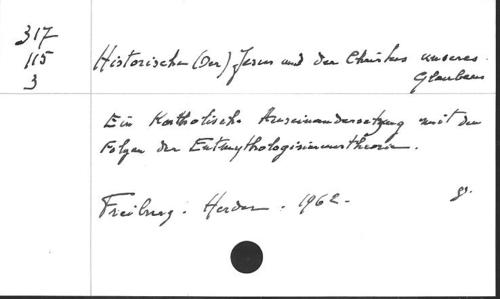 317
115
3
Historische (Der) Jesus und der Christus unseres
Glaubens
Ein Katholische Auseinandersetzung mit den
Folgen der Entmythologisierungstheorie.
Freiburg. Herder. 1962.